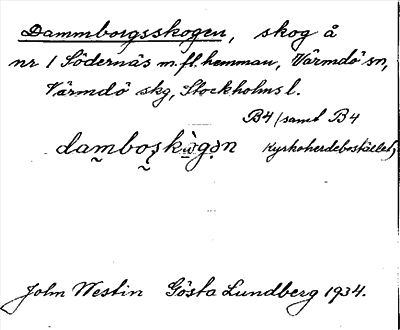 Dammborgsskogen, skog å
nr 1 Södernäs m.fl. hemman, Värmdö sn,
Värmdö skg, Stockholms l.
B4 / samt B4
kyrkoherdebostället
John Westin Gösta Lundberg 1934.